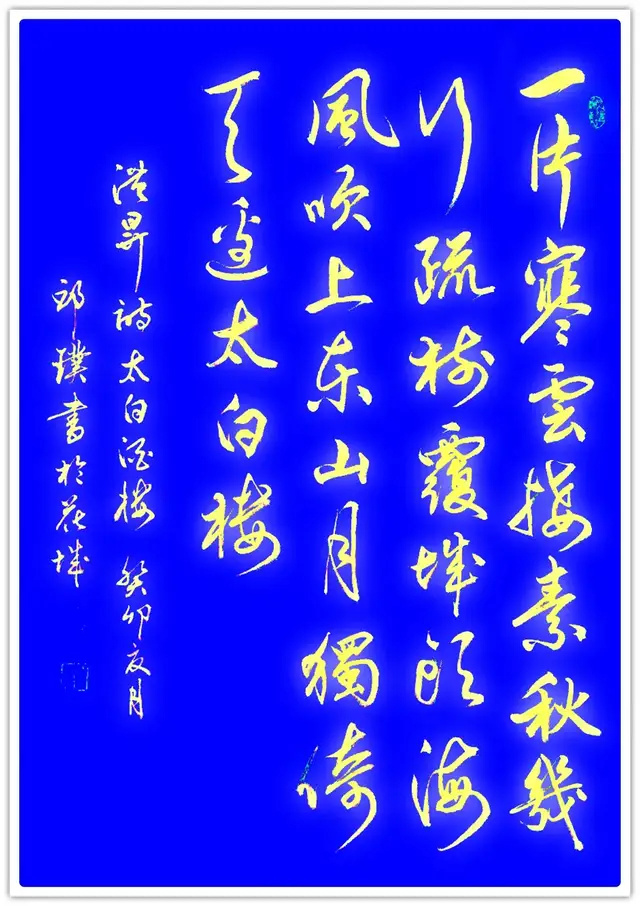 一片寒雲接素秋幾
行疏樹覆城頭海
風吹上東山月獨倚
天邊太白樓
洪昇詩太白酒樓 癸卯夏月
邱璞書於花城